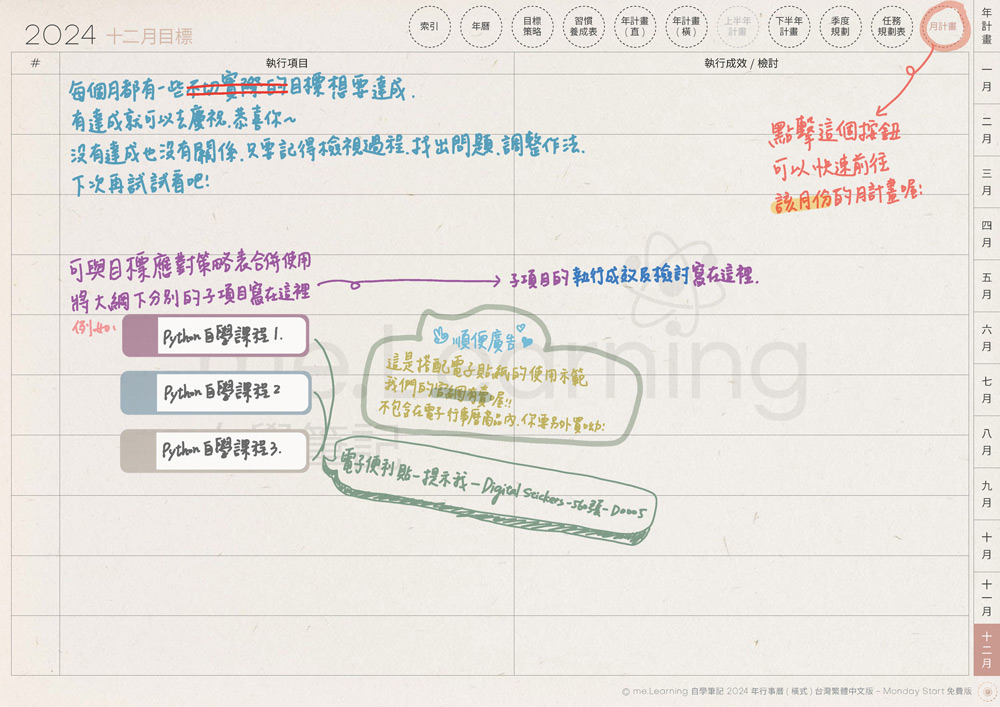 2024 十二月目標
索引
年曆
目標
策略
習慣
養成表
年計畫
(直)
年計畫
(橫)
上半年
計畫
下半年
計畫
季度
規劃
任務
規劃表
月計畫
年計畫
一月
二月
三月
四月
五月
六月
七月
八月
九月
十月
十一月
十二月
#
執行項目
執行成效 / 檢討
每個月都有一些不切實際的目標想要達成.
有達成就可以去慶祝.恭喜你~
沒有達成也沒有關係.只要記得檢視過程.找出問題.調整作法.
下次再試試看吧!
點擊這個按鈕
可以快速前往
該月份的月計畫喔!
可與目標應對策略表合併使用
將大綱下分別的子項目寫在這裡
子項目的執行成效及檢討寫在這裡.
例如:
Python 自學課程 1.
Python 自學課程 2
Python 自學課程 3.
順便廣告
這是搭配電子貼紙的使用示範
我們的官網有賣喔!!
不包含在電子行事曆商品內.你要另外買
電子便利貼-提示我-Digital Stickers-560張-D0005
me.Learning
自學筆記
© me.Learning 自學筆記 2024 年行事曆 ( 橫式 ) 台灣繁體中文版 - Monday Start 免費版